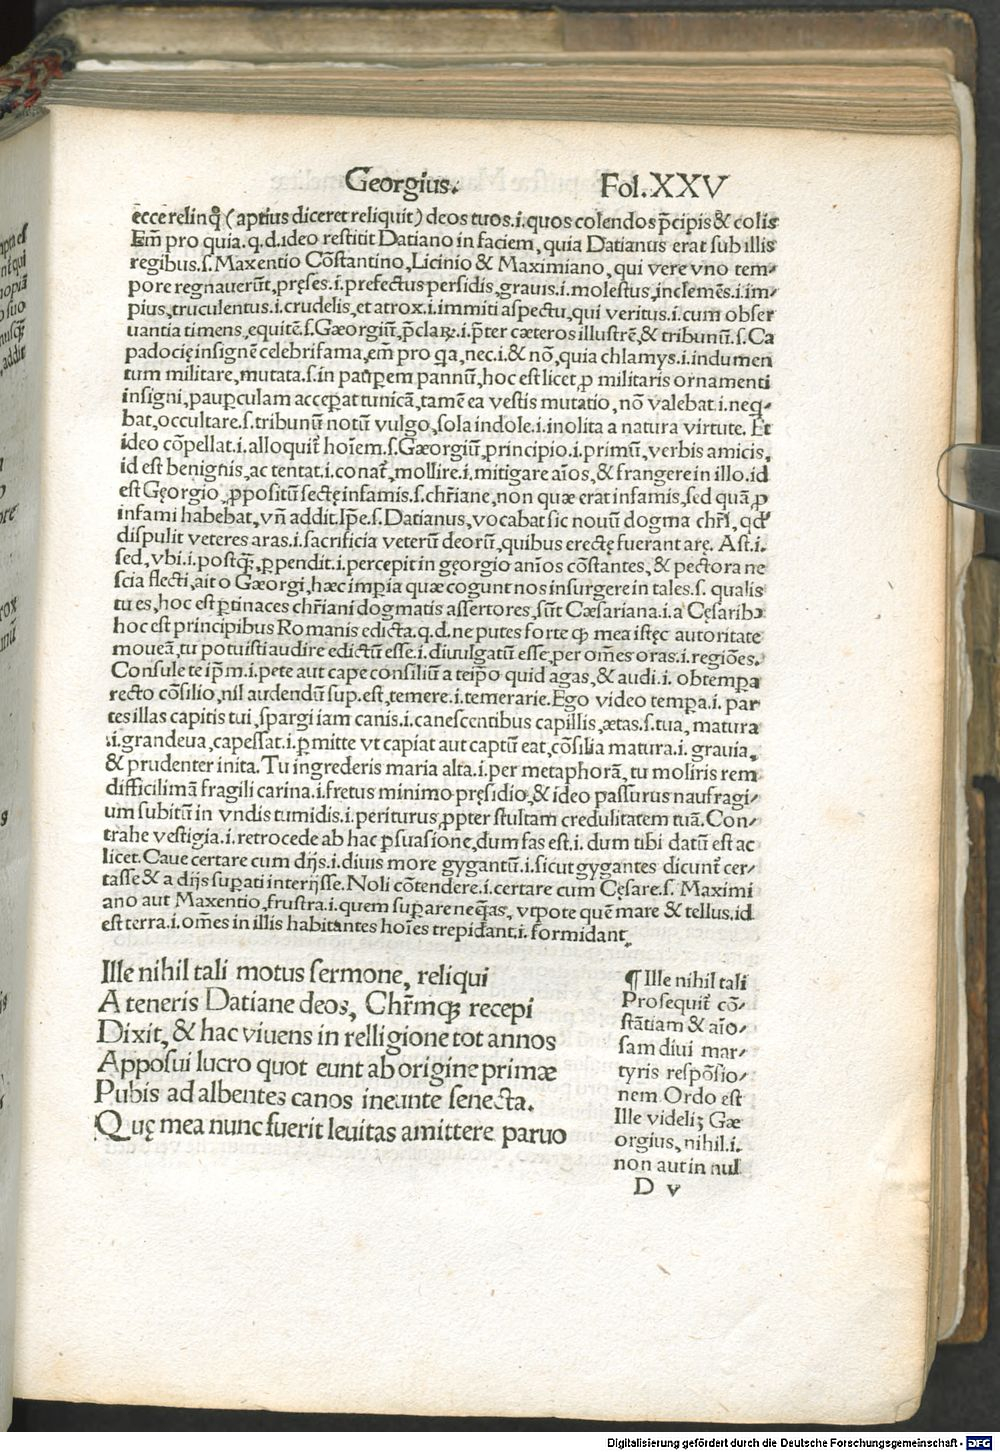 Georgius. Fol.XXV
ecce relinq̃ (aptius diceret reliquit) deos tuos.i.quos colendos p̃cipis & colis
Em̃ pro quia.q.d.ideo restitit Datiano in faciem, quia Datianus erat sub illis
regibus.s.Maxentio Cõstantino, Licinio & Maximiano, qui vere vno tem-
pore regnauerũt, pręses.i.prefectus persidis, grauis.i.molestus, inclemẽs.i.im-
pius, truculentus.i.crudelis, et atrox.i.immiti aspectu, qui veritus.i.cum obser
uantia timens, equitẽ.s.Gæorgiũ, p̃claꝝ.i.p̃ter cæteros illustrẽ, & tribunũ.s.Ca
padocię insignẽ celebri fama, em̃ pro qa, nec.i.& nõ, quia chlamys.i.indumen
tum militare, mutata.s.in paup̱em pannũ, hoc est licet, ꝓ militaris ornamenti
insigni, paup̱culam accep̱at tunicã, tamẽ ea vestis mutatio, nõ valebat.i.neq-
bat, occultare.s.tribunũ notũ vulgo, sola indole.i.inolita a natura virtute. Et
ideo cõpellat.i.alloquit̃ hoĩem.s.Gæorgiũ, principio.i.primũ, verbis amicis,
id est benignis, ac tentat.i.conat̃, mollire.i.mitigare aĩos, & frangere in illo.id
est Gęorgio, ꝓpositũ sectę infamis.s.chr̃iane, non quæ erat infamis, sed quã ꝓ
infami habebat, vñ addit. Ip̃e.s.Datianus, vocabat sic nouũ dogma chr̃i, qđ
dispulit veteres aras.i.sacrificia veterũ deorũ, quibus erectę fuerant arę. Ast.i.
sed, vbi.i.postq̃, ꝑpendit.i.percepit in gęorgio anĩos cõstantes, & pectora ne
scia flecti, ait o Gæorgi, hæc impia quæ cogunt nos insurgere in tales.s. qualis
tu es, hoc est ꝑtinaces chr̃iani dogmatis assertores, sũt Cæsariana.i.a Cęsaribꝰ
hoc est principibus Romanis edicta.q.d.ne putes forte ꝙ mea istęc autoritate
moueã, tu potuisti audire edictũ esse.i.diuulgatũ esse, per om̃es oras.i.regiões.
Consule te ip̃m.i.pete aut cape consiliũ a teip̃o quid agas, & audi.i. obtemp̱a
recto cõsilio, nil audendũ sup.est, temere.i.temerarie. Ego video temp̱a.i. par
tes illas capitis tui, spargi iam canis.i.canescentibus capillis, ætas.s.tua, matura
.i.grandeua, capessat.i.ꝑmitte vt capiat aut captũ eat, cõsilia matura.i. grauia,
& prudenter inita. Tu ingrederis maria alta.i.per metaphorã, tu moliris rem
difficilimã fragili carina.i.fretus minimo pręsidio, & ideo passurus naufragi-
um subitũ in vndis tumidis.i.periturus, ꝓpter stultam credulitatem tuã. Con-
trahe vestigia.i.retrocede ab hac ꝑsuasione, dum fas est.i. dum tibi datũ est ac
licet. Caue certare cum dijs.i.diuis more gygantũ.i.sicut gygantes dicunt̃ cer-
tasse & a dijs sup̱ati interijsse. Noli cõtendere.i.certare cum Cęsare.s. Maximi
ano aut Maxentio, frustra.i.quem sup̱are neq̃as, vtpote quẽ mare & tellus.id
est terra.i.om̃es in illis habitantes hoĩes trepidant.i.formidant.
Ille nihil tali motus sermone, reliqui
A teneris Datiane deos, Chr̃mqꝫ recepi
Dixit, & hac viuens in relligione tot annos
Apposui lucro quot eunt ab origine primæ
Pubis ad albentes canos ineunte senecta.
Quę mea nunc fuerit leuitas amittere paruo
¶ Ille nihil tali
Prosequit̃ cõ-
stãtiam & aĩo-
sam diui mar-
tyris respõsio-
nem. Ordo est
Ille videliꝫ Gæ
orgius, nihil.i.
non aut in nul
D v
Digitalisierung gefördert durch die Deutsche Forschungsgemeinschaft - DFG